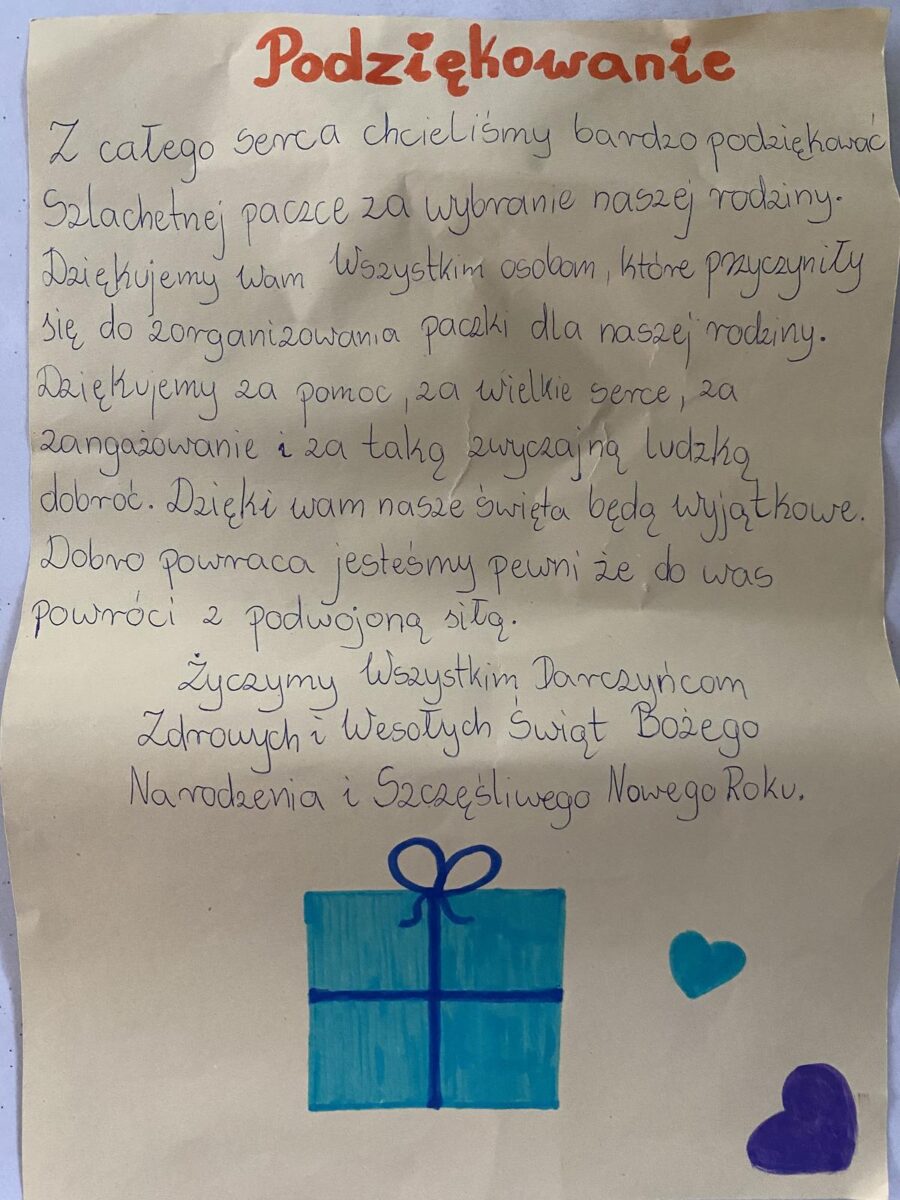 Podziękowanie
Z całego serca chcieliśmy bardzo podziękować
Szlachetnej paczce za wybranie naszej rodziny.
Dziękujemy Wam Wszystkim osobom, które przyczyniły
się do zorganizowania paczki dla naszej rodziny.
Dziękujemy za pomoc, za wielkie serce, za
zangażowanie i za taką zwyczajną ludzką
dobroć. Dzięki wam nasze święta będą wyjątkowe.
Dobro powraca jesteśmy pewni że do was
powróci z podwojoną siłą.
Życzymy Wszystkim Darczyńcom
Zdrowych i Wesołych Świąt Bożego
Narodzenia i Szczęśliwego Nowego Roku.